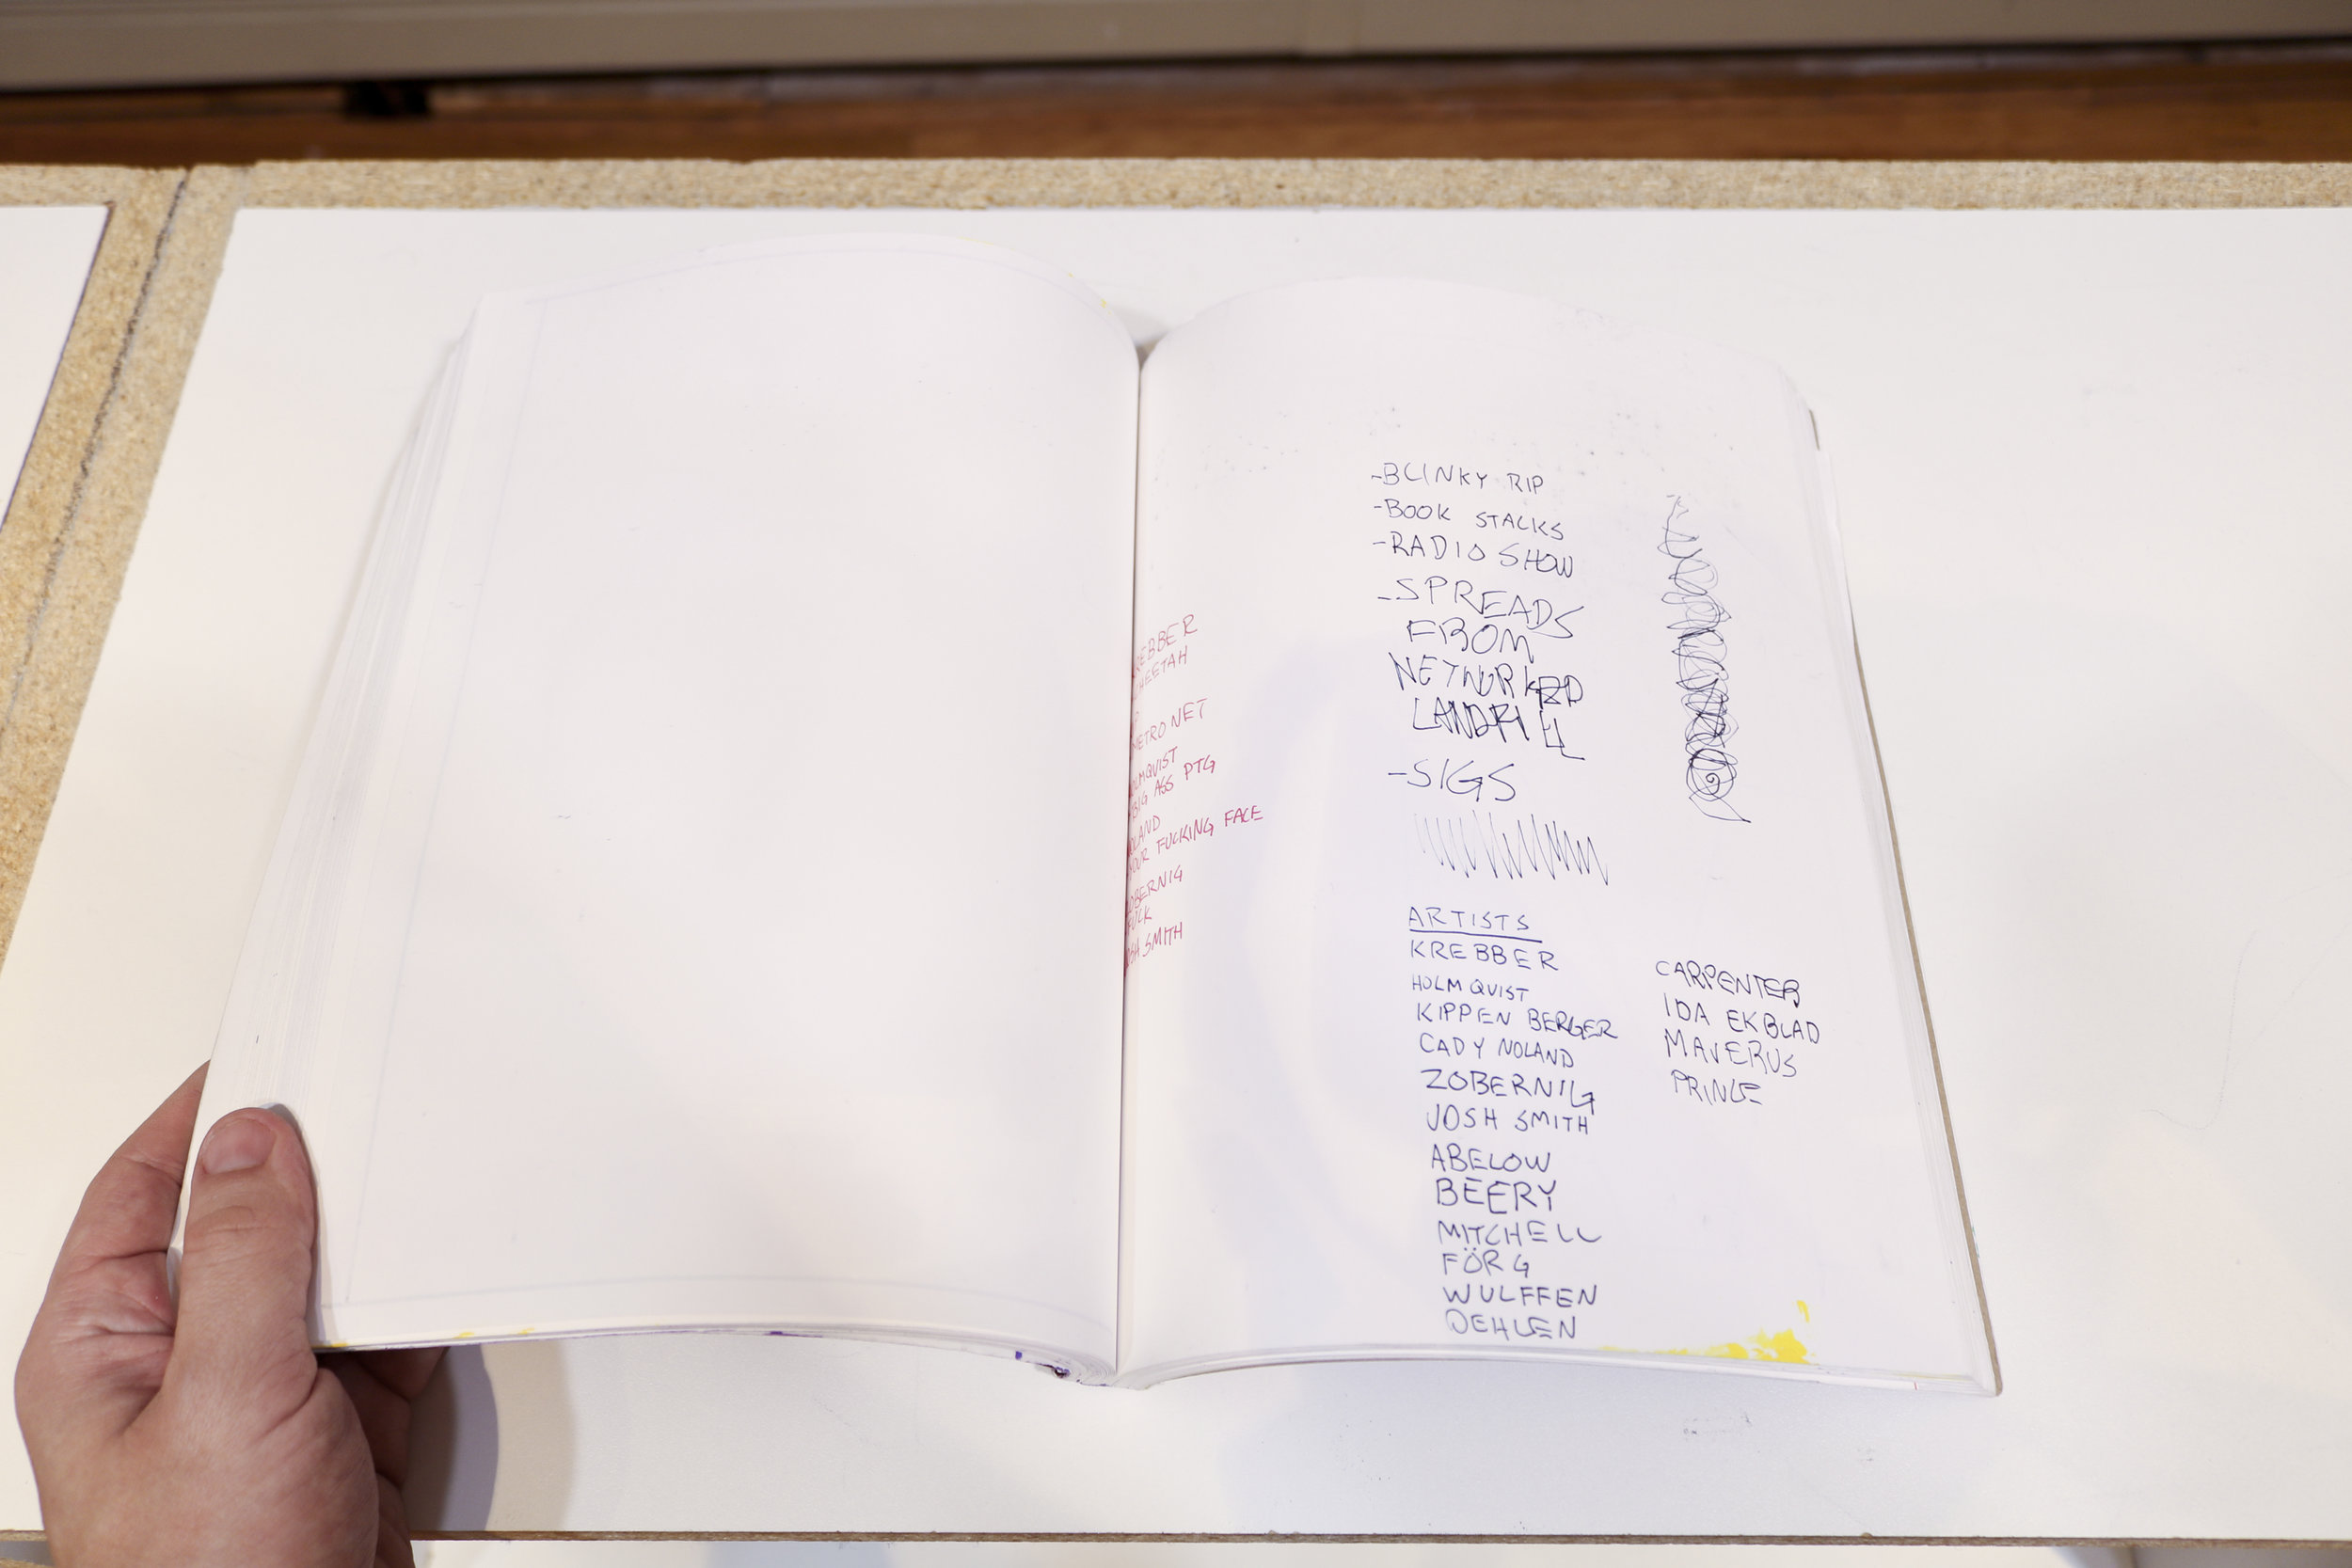 REBBER
HEETAH
METRO NET
OLMQUIST
BIG ASS PTG
OLAND
YOUR FUCKING FACE
OBERNIG
FUCK
SMITH
-BLINKY RIP
-BOOK STALKS
-RADIO SHOW
-SPREADS
FROM
NETWORKED
LANDFILL
-SIGS
ARTISTS
KREBBER
HOLMQUIST
KIPPEN BERGER
CADY NOLAND
ZOBERNIG
JOSH SMITH
ABELOW
BEERY
MITCHELL
FÖRG
WULFFEN
OEHLEN
CARPENTER
IDA EKBLAD
MAVERUS
PRINCE